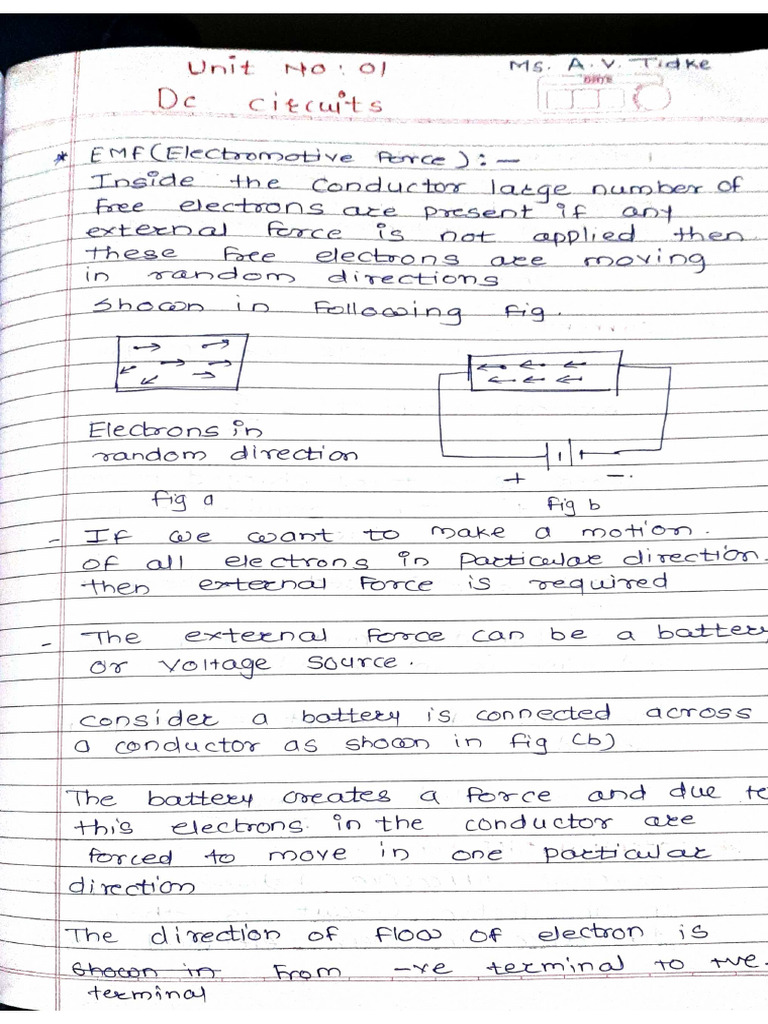 Unit No: 01
Ms. A. V. Tidke
DATE
Dc circuits
* EMF (Electromotive Force) : —
Inside the conductor large number of
free electrons are present if any
external force is not applied then
these free electrons are moving
in random directions
shown in following fig.
Electrons in
random direction
+ -.
fig a
fig b
- If we want to make a motion.
of all electrons in particular direction.
then external force is required
- The external force can be a battery
or voltage source.
consider a battery is connected across
a conductor as shown in fig (b)
The battery creates a force and due to
this electrons in the conductor are
forced to move in one particular
direction
The direction of flow of electron is
shown in from -ve terminal to +ve.
terminal